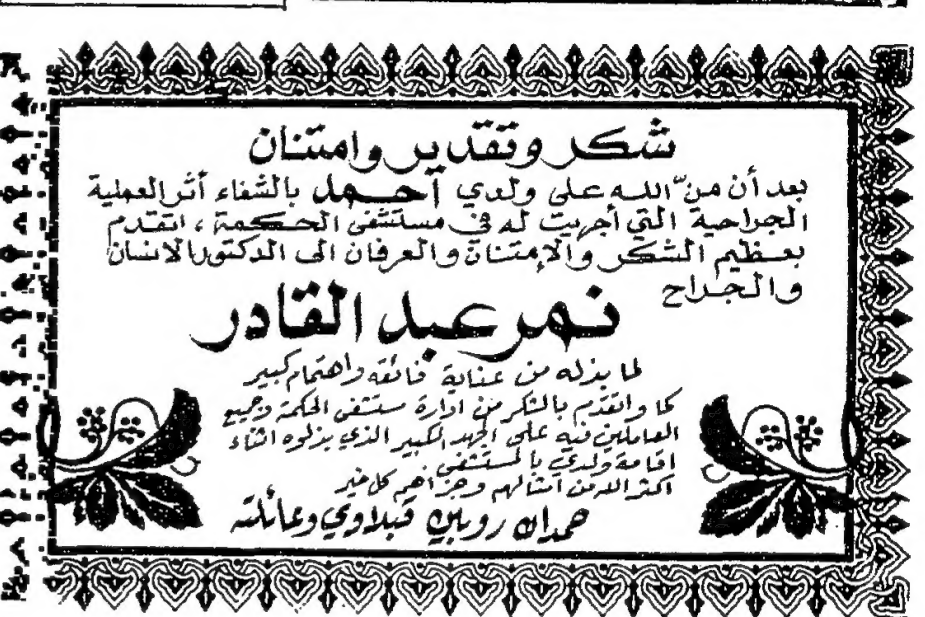 شكر وتقدير وامتنان
بعد أن منّ الله على ولدي أحمد بالشفاء أثر العملية
الجراحية التي أجريت له في مستشفى الحكمة ، اتقدم
بعظيم الشكر والإمتنان والعرفان الى الدكتور الانسان
والجراح
نمر عبد القادر
لما بذله من عناية فائقه واهتمام كبير
كما واتقدّم بالشكر من ادارة مستشفى الحكمة وجميع
العاملين فيه على الجهد الكبير الذي بذلوه اثناء
اقامة ولدي بالمستشفى
اكثر الله من امثالهم وجزاهم كل خير
حمدان روبين قبلاوي وعائلته